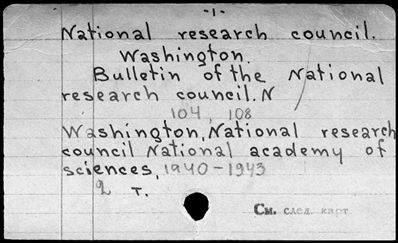 -1-
National research council.
Washington.
Bulletin of the National
research council. N
104, 108
Washington, National research
council National academy of
sciences, 1940-1943
2 т.
См. след. карт